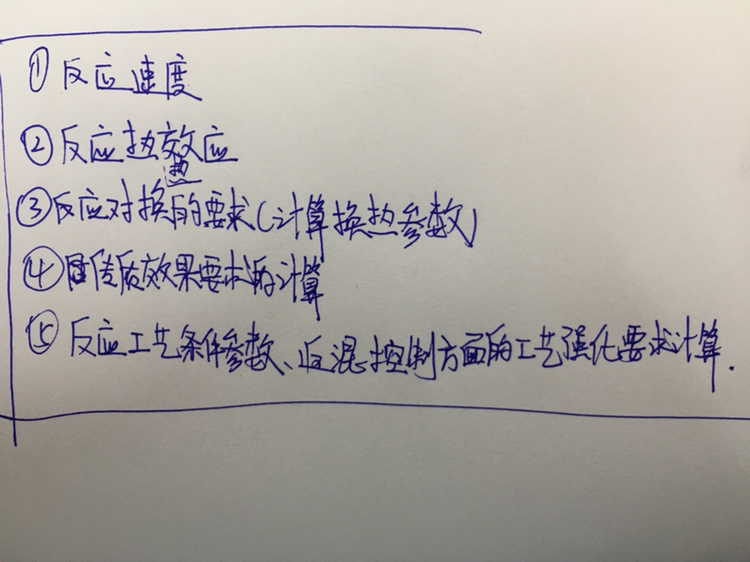 ①反应速度
②反应热效应
③反应对换热的要求(计算换热参数)
④传质效果要求的计算
⑤反应工艺条件参数、返混控制方面的工艺强化要求计算.